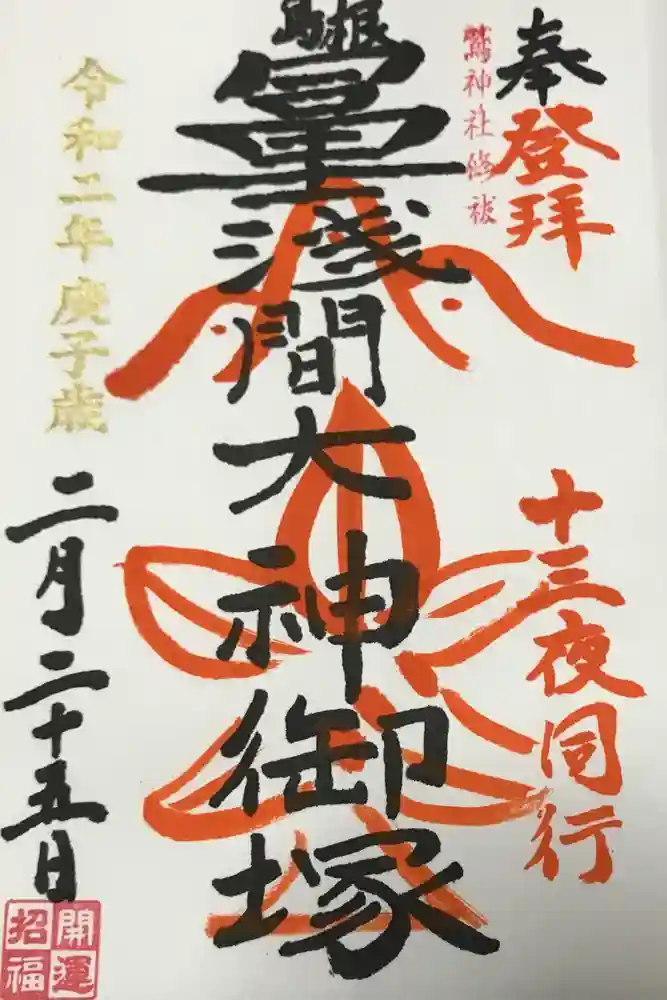 奉登拝
十三夜同行
鷲神社修祓
淺間大神御塚
令和二年庚子歳
二月二十五日
開運
招福